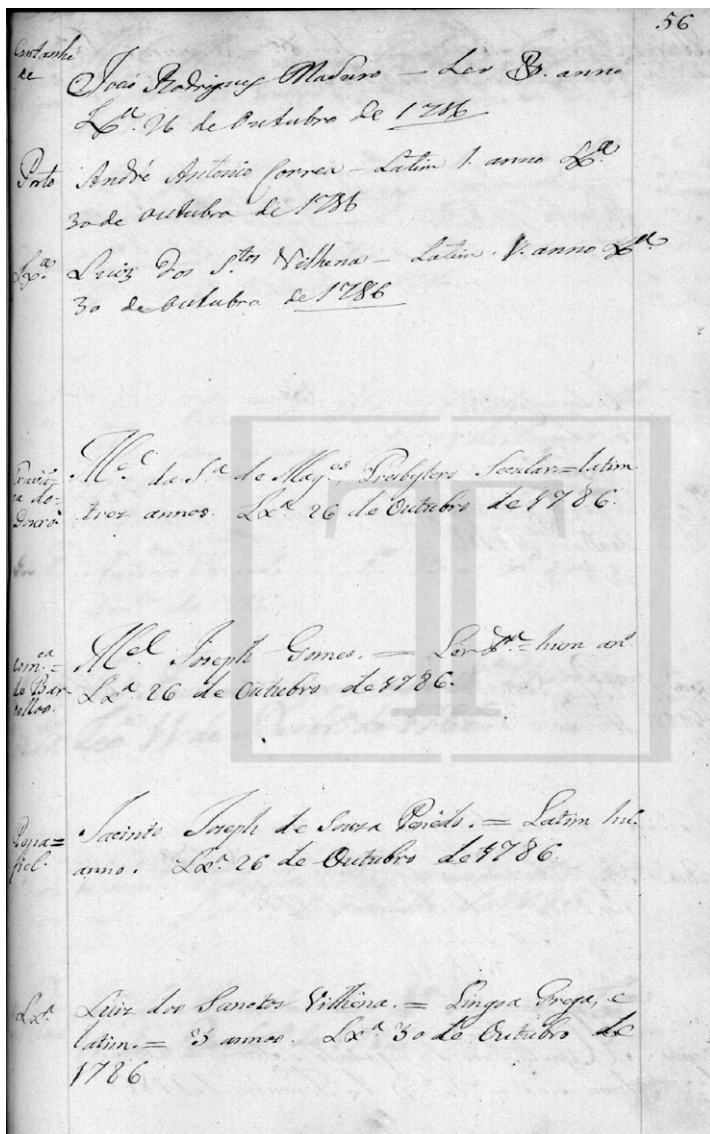 56
Cantanhe
de
João Rodrigues Maduro – Ler anno
Lxª. 26 de Outubro de 1786
Porto André Antonio Correa – Latim 1. anno Lxª
30 de outubro de 1786
Lxª. Luiz Dos S.tos Vilhena – Latim. 1. anno Lxª
30 de Outubro de 1786
M.el da S.ª de Mag.es Presbytero Secular = latim
do-
Douro
trez annos. Lxª 26 de Outubro de 1786.
M.el Joseph Gomes. = Ler = hum an.
de Bar-
cellos.
Lxª 26 de Outubro de 1786.
Pena=
fiel.
Jacinto Joseph de Souza Penêdo. = Latim hũ
anno. Lxª 26 de Outubro de 1786.
Lxª. Luiz dos Sanctos Vilhêna. = Lingoa Grega, e
latim. = 3 annos. Lxª 30 de Outubro de
1786